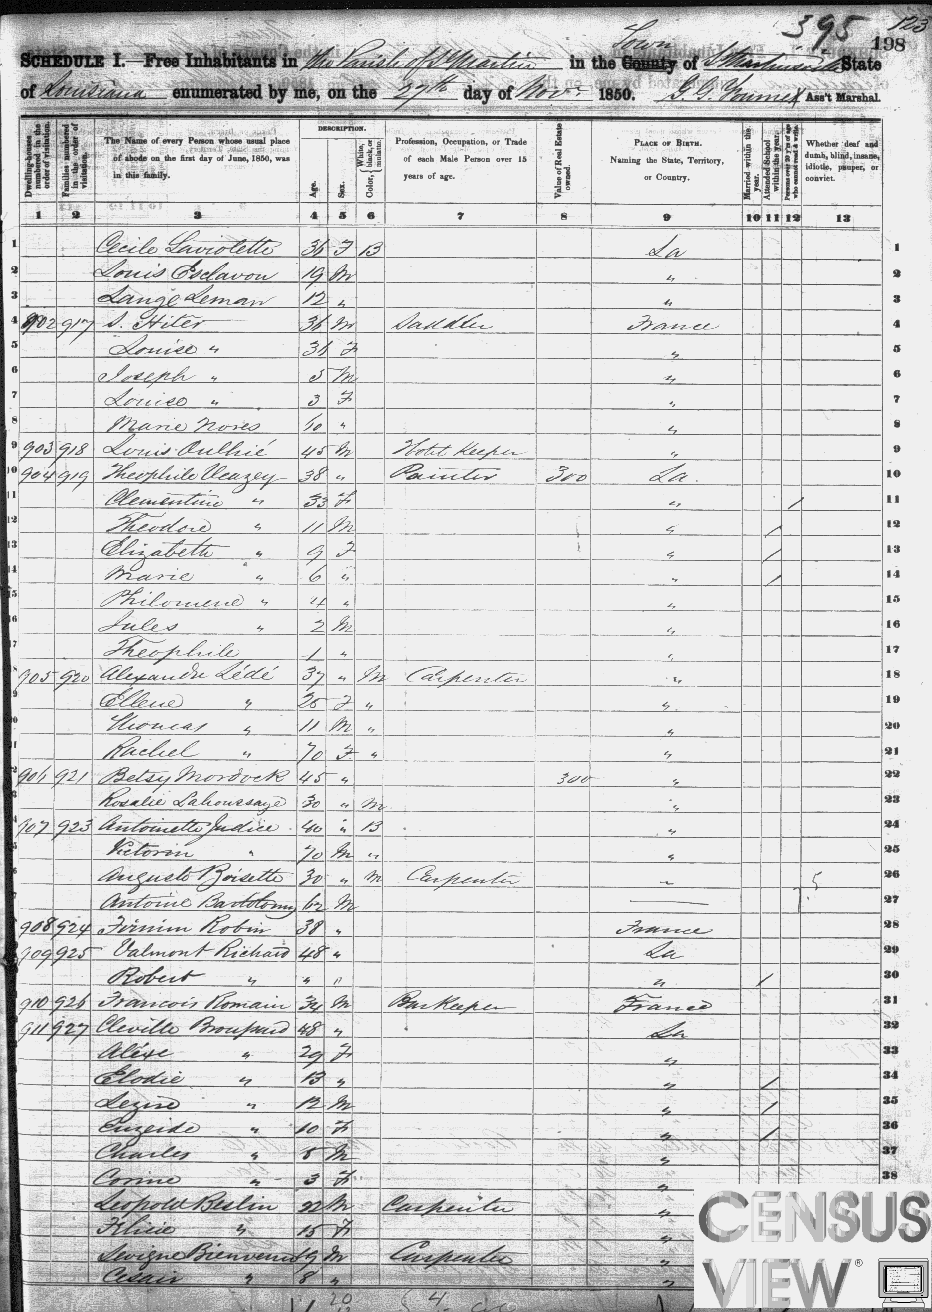 395
123
198
SCHEDULE I.—Free Inhabitants in the Parish of St Martin in the County Town of St Martinsville State
of Louisiana enumerated by me, on the 27th day of Novr 1850. Ass't Marshal.
Dwelling-houses numbered in the order of visitation. Families numbered in the order of visitation. The Name of every Person whose usual place of abode on the first day of June, 1850, was in this family. DESCRIPTION. Age. Sex. Color, White, black, or mulatto. Profession, Occupation, or Trade of each Male Person over 15 years of age. Value of Real Estate owned. PLACE OF BIRTH. Naming the State, Territory, or Country. Married within the year. Attended School within the year. Persons over 20 y'rs of age who cannot read & write. Whether deaf and dumb, blind, insane, idiotic, pauper, or convict.
1 2 3 4 5 6 7 8 9 10 11 12 13
1 Cecile Laviolette 36 F B La 1
2 Louis Esclavon 19 M " 2
3 Lange Leman 12 " " 3
4 902 917 S. Hiter 36 M Saddler France 4
5 Louise " 36 F " 5
6 Joseph " 5 M " 6
7 Louise " 3 F " 7
8 Marie Nores 60 " " 8
9 903 918 Louis 45 M Hotel Keeper " 9
10 904 919 Theophile Veazey 38 " Painter 300 La. 10
11 Clementine " 33 F " / 11
12 Theodore " 11 M " / 12
13 Elizabeth " 9 F " / 13
14 Marie " 6 " " / 14
15 Philomene " 4 " " 15
16 Jules " 2 M " 16
17 Theophile 1 " " 17
18 905 920 Alexandre Lédé 37 " M Carpenter " 18
19 Ellene " 25 F " " 19
20 Thomas " 11 M " " 20
21 Rachel " 70 F " " 21
22 906 921 Betsy Mordock 45 " 300 " 22
23 Rosalie Lahoussaye 30 " M " 23
24 907 923 Antoinette Judice 40 " B " 24
25 Victorin " 70 M " " 25
26 Auguste Boisette 30 " M Carpenter " 26
27 Antoine Bartolomy 62 M — 27
28 908 924 Firmin Robin 38 " France 28
29 909 925 Valmont Richard 48 " La 29
30 Robert " " " " / 30
31 910 926 Francois Romain 34 M Barkeeper France 31
32 911 927 Cleville Broussard 48 " La 32
33 Aléxe " 29 F " 33
34 Elodie " 13 " " / 34
35 Lezire " 12 M " / 35
36 " 10 F " / 36
37 Charles " 5 M " 37
38 Corine " 3 F " 38
Leopold Beslin 22 M Carpenter "
Filicie " 15 F "
Sevigne Bienvenu 19 M Carpenter "
Cesair " 8 " "
CENSUS
VIEW®